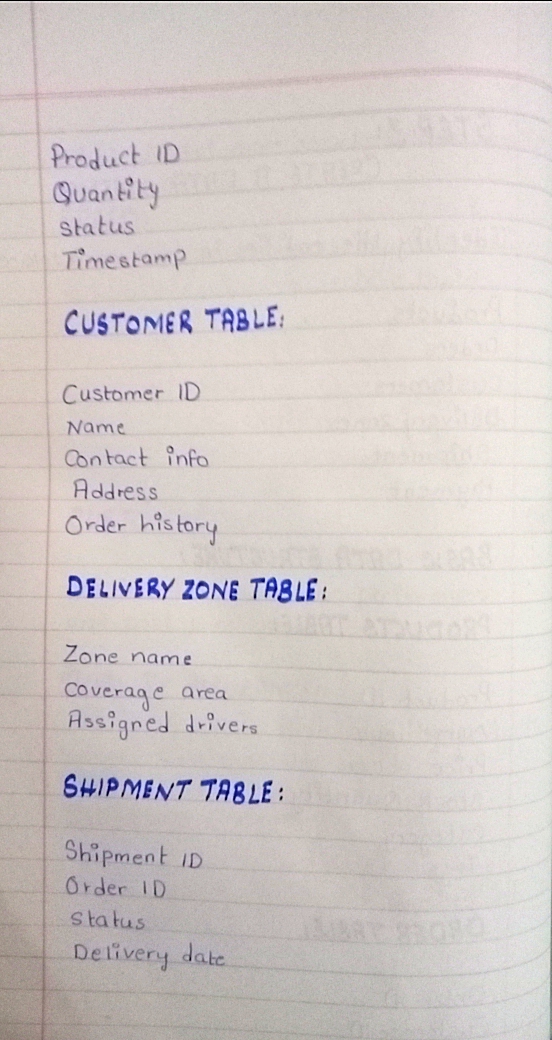 Product ID
Quantity
Status
Timestamp
CUSTOMER TABLE:
Customer ID
Name
Contact info
Address
Order history
DELIVERY ZONE TABLE:
Zone name
Coverage area
Assigned drivers
SHIPMENT TABLE:
Shipment ID
Order ID
Status
Delivery date